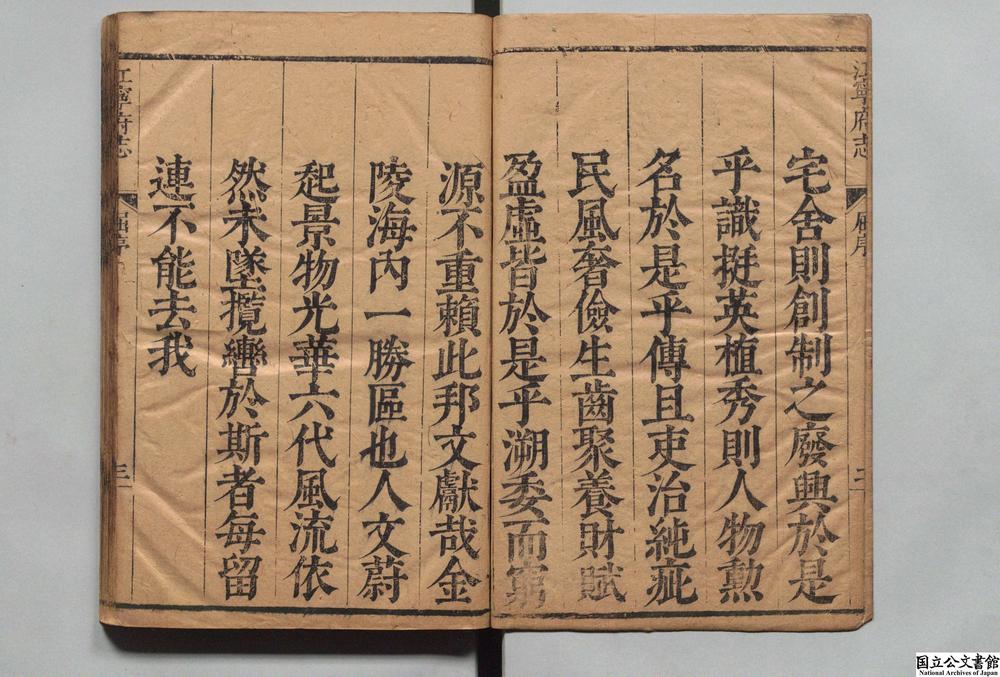 江寧府志
序
二
宅舍則創制之廢興於是
乎識挺英植秀則人物勲
名於是乎傳且吏治純疵
民風奢儉生齒聚養財賦
盈虛皆於是乎溯委而窮
源不重賴此邦文獻哉金
陵海內一勝區也人文蔚
起景物光華六代風流依
然未墜攬轡於斯者每留
連不能去我
江寧府志
三
国立公文書館
National Archives of Japan